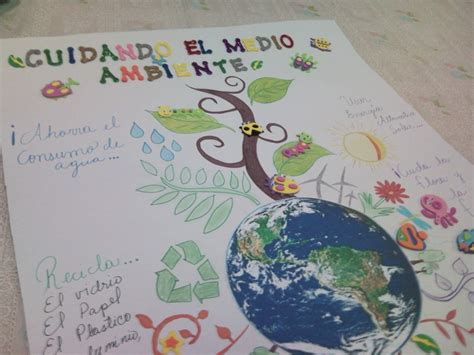 CUIDANDO EL MEDIO
AMBIENTE
¡Ahorra el
Consumo de
agua...
Usar
Energía
Alternativa
Recicla...
El vidrio
El Papel
El Plástico